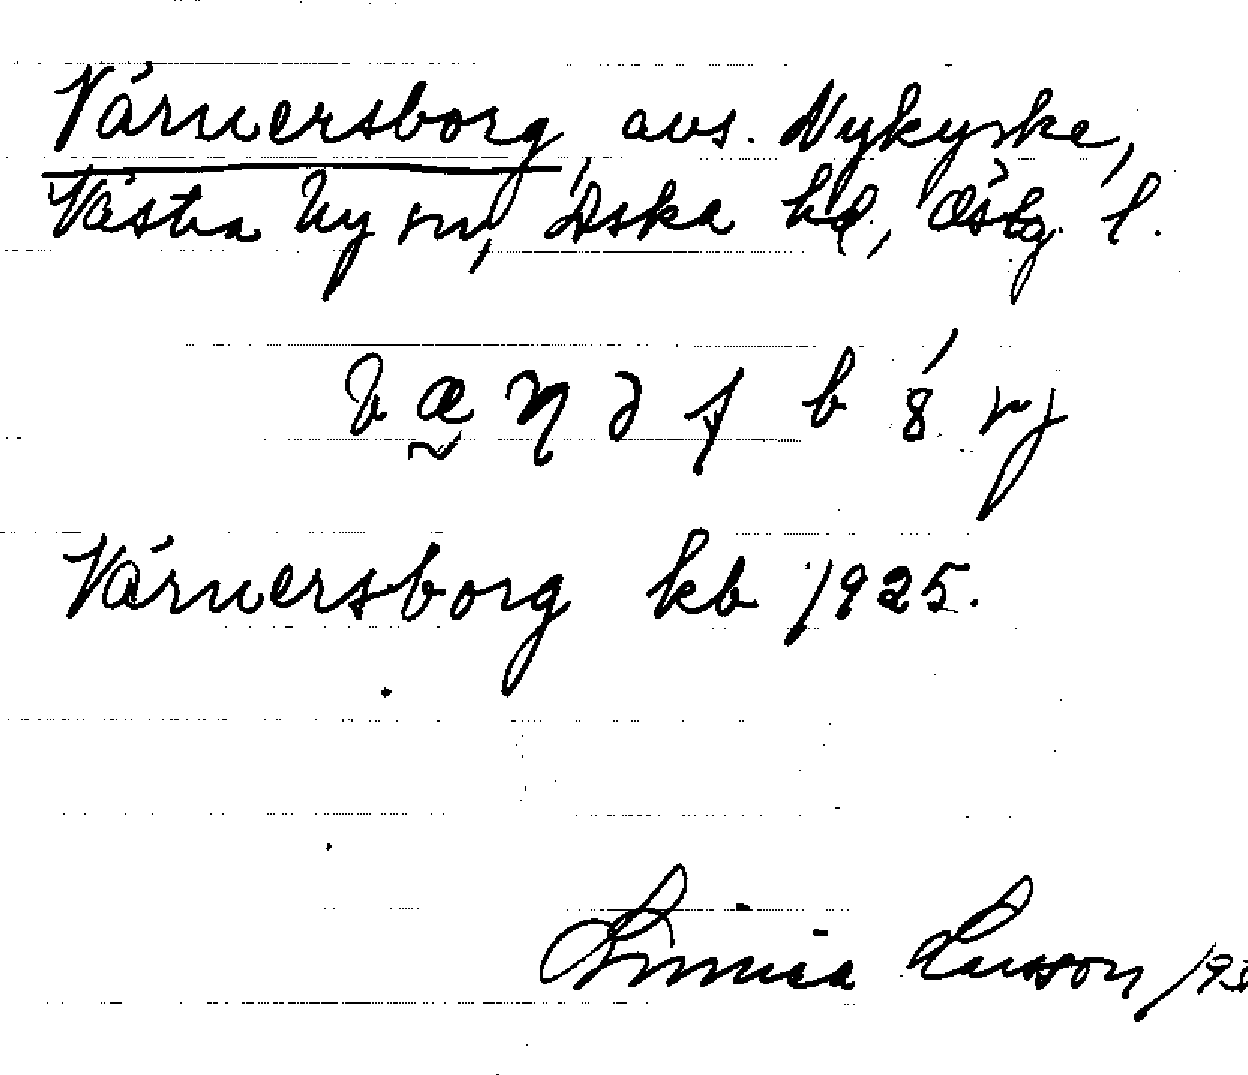 Värnersborg, avs. Nykyrke,
Västra Ny sn, Aska hd, Östg. l.
Värnersborg kb 1925.
Linnéa Larsson 193